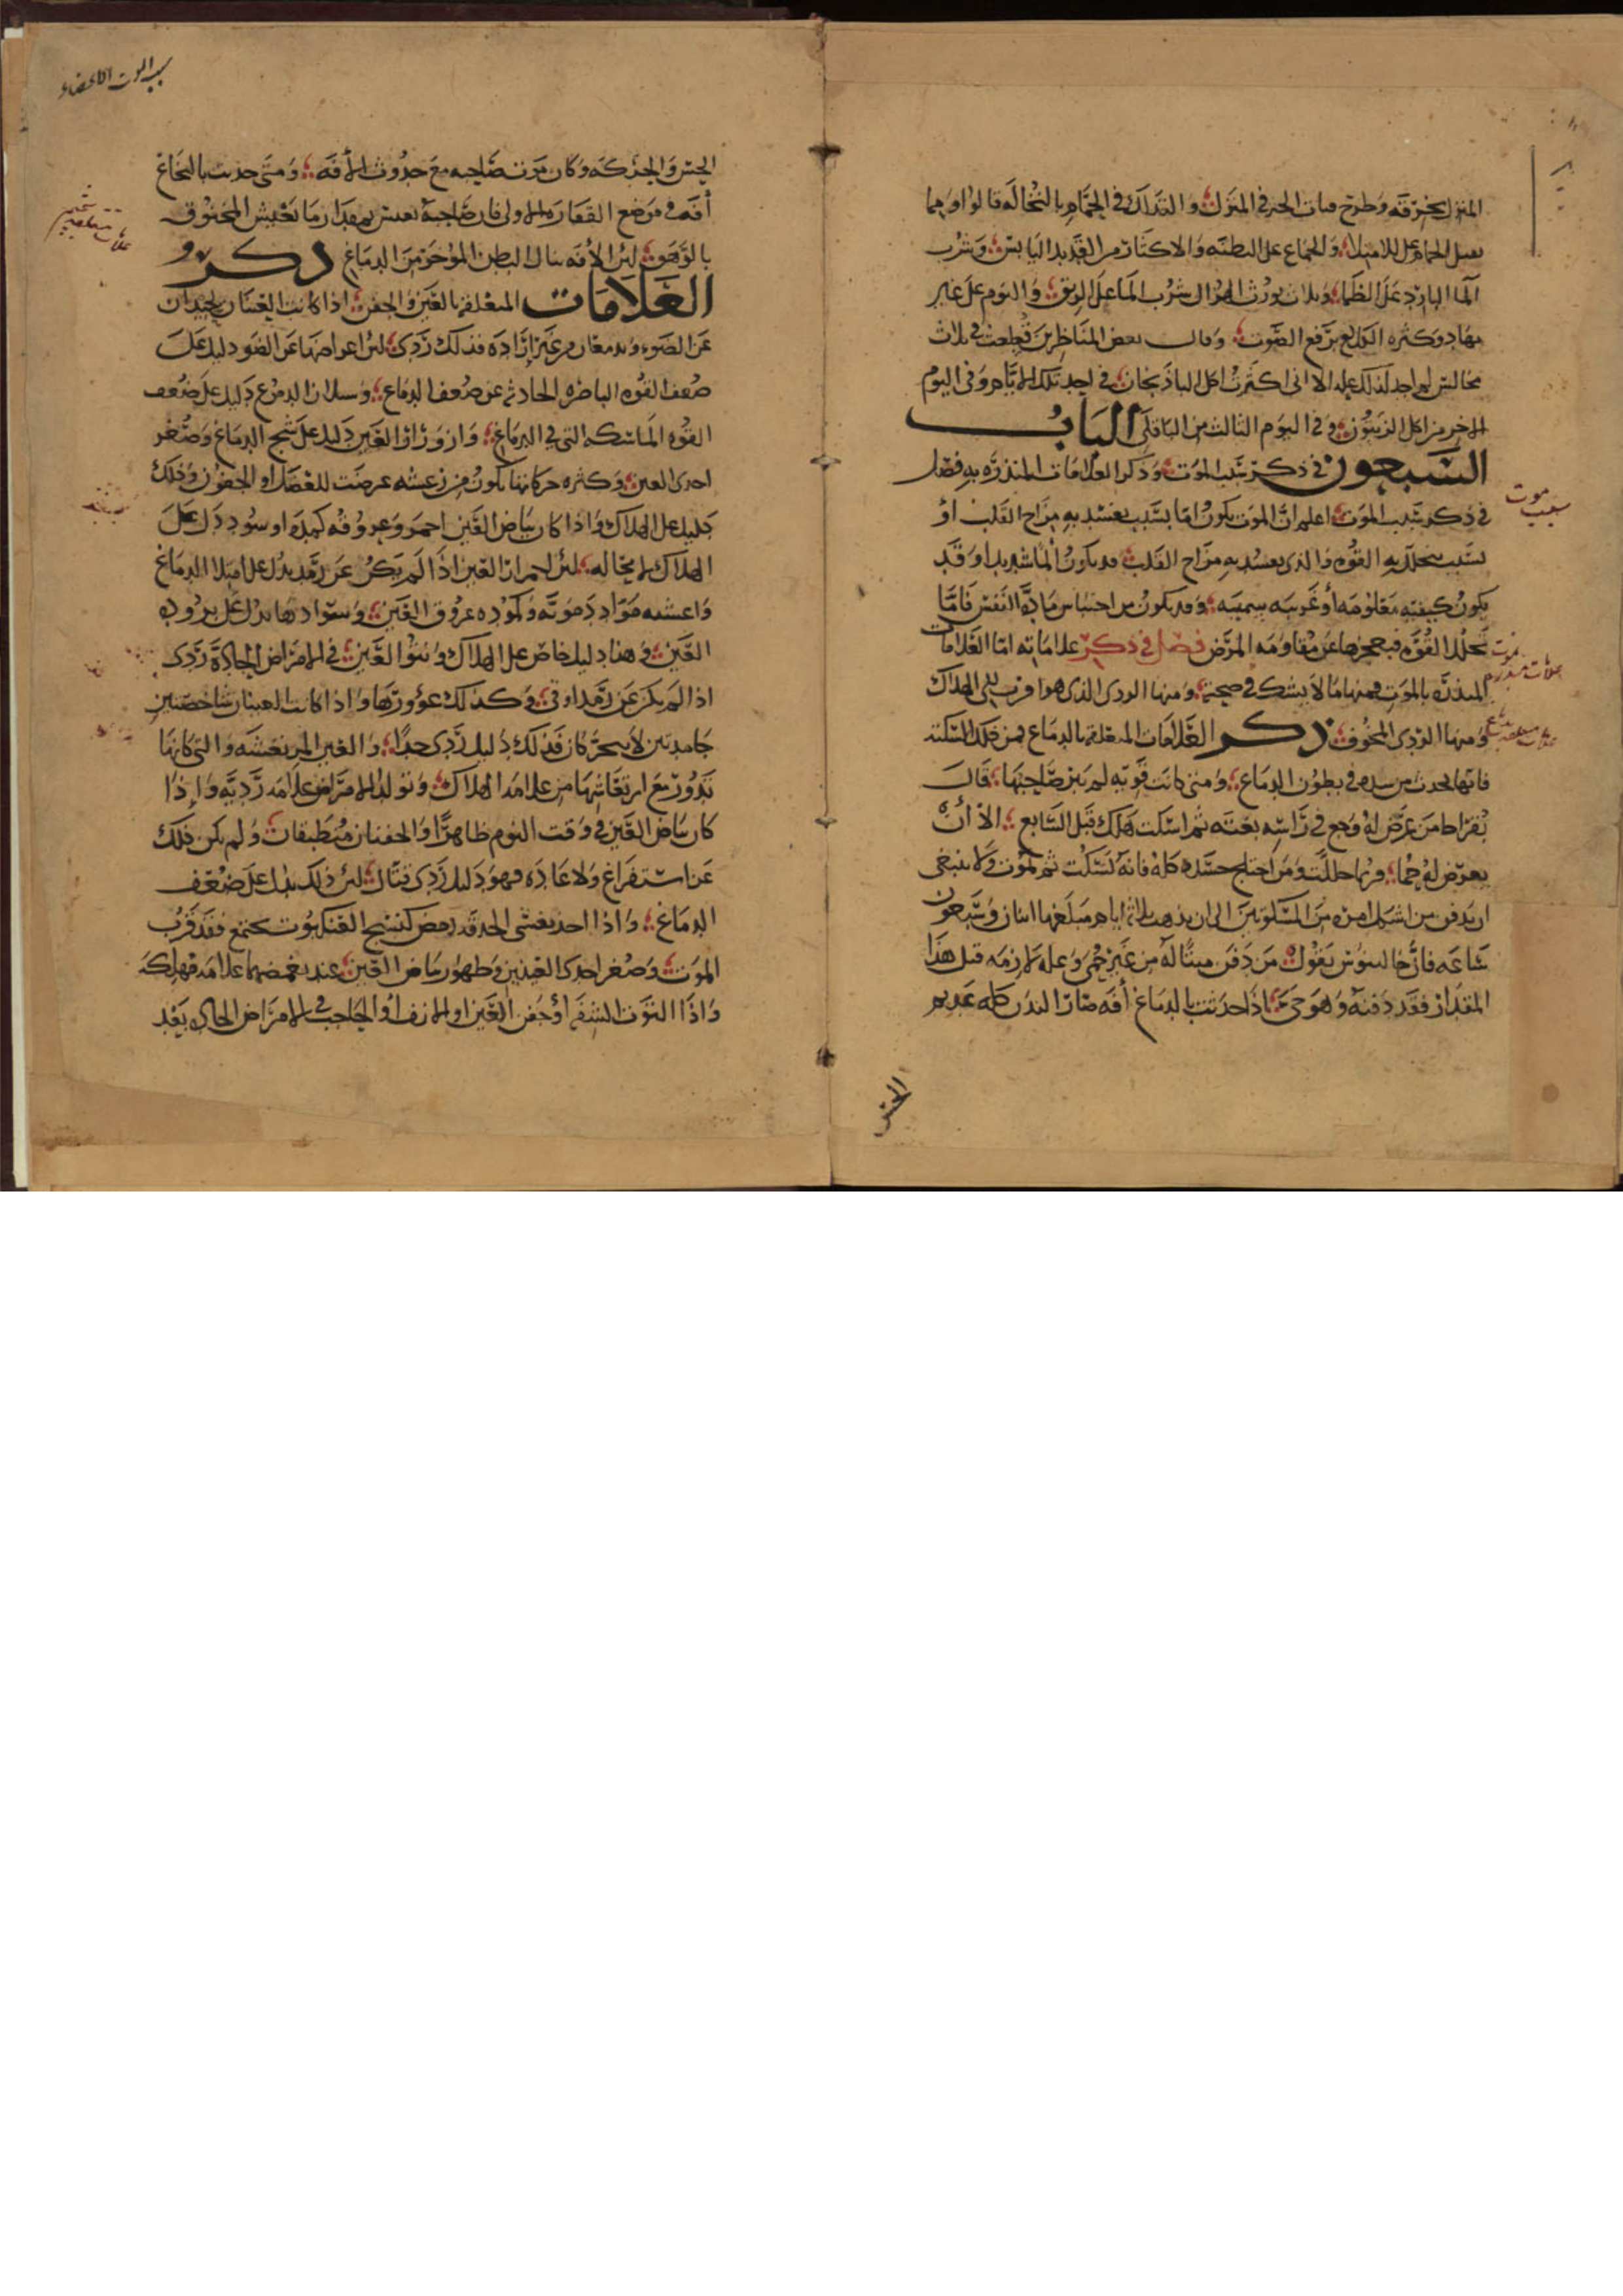 المنزل بخرقة وطرح فتات الخبز في المنزل والتدلك في الحمام بالنخالة قالوا ومما
الحمام على الامتلاء والجماع على البطنة والاكثار من القديد اليابس وشرب
الماء البارد على الظماء وثلاث يورث الهزال شرب الماء على الريق والنوم على غير
مهاد وكثرة الكلام برفع الصوت وقال بعض المناظرين قطعت في ثلاث
مجالس لم اجد لذلك علة الا اني اكثرت اكل الباذنجان في احد تلك الايام وفي اليوم
الاخر من اكل الزيتون وفي اليوم الثالث من الباقلي الباب
السبعون في ذكر سبب الموت وذكر العلامات المنذرة به فصل
في ذكر سبب الموت اعلم ان الموت يكون اما بسبب يفسد به مزاج القلب او
بسبب تتحلل به القوة والذي يفسد به مزاج القلب قد يكون الما شديدا وقد
يكون كيفية معلومة او غريبة سمية وقد يكون من احتباس مادة النفس فاما
تحلل القوة فبعجزها عن مقاومة المرض فصل في ذكر علاماته اما العلامات
المنذرة بالموت فمنها ما لا يشك في صحته ومنها الردي الذي هو اقرب الى الهلاك
ومنها الردى المخوف ذكر العلامات المتعلقة بالدماغ فمن ذلك السكتة
فانها تحدث من سدة في بطون الدماغ ومتى كانت قوية لم يبر صاحبها قال
بقراط من عرض له وجع في راسه بغتة ثم اسكت هلك قبل السابع الا ان
يعرض له حما فربما حللت ومن اختلج جسده كله فانه يسكت ثم يموت ولا ينبغي
ان يدفن من اشكل امره من المسكوتين الى ان يذهب ثلاثة ايام مبلغها اثنان وسبعون
ساعة فان جالينوس يقول من دفن ميتا له من غير حمى وعلة لازمة قبل هذا
المقدار فقد دفنه وهو حي اذا حدثت بالدماغ آفة صار البدن كله عديم
الحس
سبب موت
علامات منذره بموت
علامات متعلقه بدماغ
سبب الموت الاعضاء
الحس والحركة وكان موت صاحبه مع حدوث الآفة ومتى حدثت بالنخاع
آفة في موضع الفقارة الاولى فان صاحبه يعيش بمقدار ما يعيش المخنوق
بالوهق لئن الافة تنال البطن المؤخر من الدماغ ذكر
العلامات المتعلقة بالعين والجفن اذا كانت العينان تحيدان
عن الضوء وتدمعان من غير ارادة فذلك ردى لئن اعراضها عن الضو دليل على
ضعف القوة الباصرة الحادثة عن ضعف الدماغ وسيلان الدموع دليل على ضعف
القوة الماسكة التي في الدماغ وازورار العين دليل على تشنج الدماغ وصغر
احدى العين وكثرة حركاتها يكون من رعشة عرضت للعضل او الجفون وذلك
دليل على الهلاك واذا كان بياض العين احمر وعروقه كمدة او سود دل على
الهلاك لا محالة لئن احمرار العين اذا لم يكن عن رمد يدل على امتلاء الدماغ
واغشيته مواد دموية وكمودة عروق العين وسوادها يدل على برودة
العين وهذا دليل خاص على الهلاك ونتوا العين في الامراض الحادة ردى
اذا لم يكن عن رمد او قي وكذلك غؤورها واذا كانت العينان شاخصتين
جامدتين لا يتحركان فذلك دليل ردى جدا والعين المرتعشة والتي كانها
تدور مع ارتعاشها من علامة الهلاك وتولد الامراض علامة ردية واذا
كان بياض العين في وقت النوم ظاهرا والجفنان منطبقان ولم يكن ذلك
عن استفراغ ولا عادة فهو دليل ردى قتال لئن ذلك يدل على ضعف
الدماغ واذا اخذ يغشى الحدقة رمص كنسيج العنكبوت يجتمع فقد قرب
الموت وصغر احدى العينين وظهور بياض العين عند تغميضها علامة مهلكة
واذا التوت الشفة او جفن العين او الانف او الحاجب في الامراض الحادة بعد